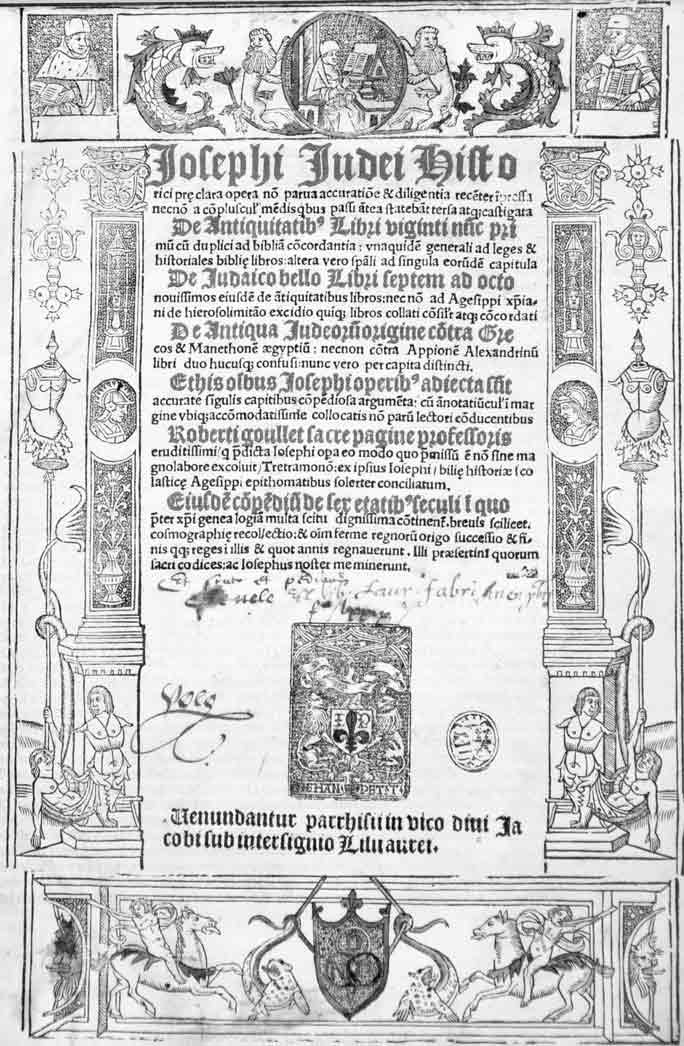 Josephi Judei Histo
rici pręclara opera nō parua accuratiōe & diligentia recēter īpressa
necnō a cōpluscul' mēdis qbus passī āte a statebāt tersa atq; castigata
De Antiquitatibꝰ Libri viginti nūc pri
mū cū duplici ad bibliā cōcordantia: vnaquidē generali ad leges &
historiales biblię libros: altera vero spāli ad singula eorūdē capitula
De Judaico bello Libri septem ad octo
nouissimos eiusdē de ātiquitatibus libros: nec nō ad Agesippi xp̄ia-
ni de hierosolimitāo excidio quiq; libros collati cōsilr̄ atq; cōcordati
De Antiqua Judeorū origine cōtra Gre
cos & Manethonē ægyptiū: necnon cōtra Appionē Alexandrinū
libri duo hucusq; confusi: nunc vero per capita distincti.
Ethis oībus Josephi operibꝰ adiecta sūt
accurate sigulis capitibus cōpēdiosa argumēta: cū ānotatiūcul' ī mar
gine vbiq; accōmodatissime collocatis nō parū lectori cōducentibus
Roberti goullet sacre pagine professoris
eruditissimi/ q p̄dicta Iosephi opa eo modo quo p̄missū ē nō sine ma
gno labore excoluit/ Tretramonō: ex ipsius Iosephi/ biblię historiæ sco
lasticę Agesippi epithomatibus solerter conciliatum.
Eiusdē cōpēdiū de sex etatibꝰ seculi ī quo
p̄ter xp̄i genealogiā multa scitu dignissima cōtinent᷑. breuis scilicet.
cosmographię recollectio: & oīm ferme regnorū origo successio & fi-
nis qq; reges ī illis & quot annis regnauerunt. Illi præsertim quorum
sacri codices: ac Iosephus noster meminerunt.
I P
IEHAN PETIT
Uenundantur parrhisii in vico diui Ja
cobi sub intersignio Lilii aurei.